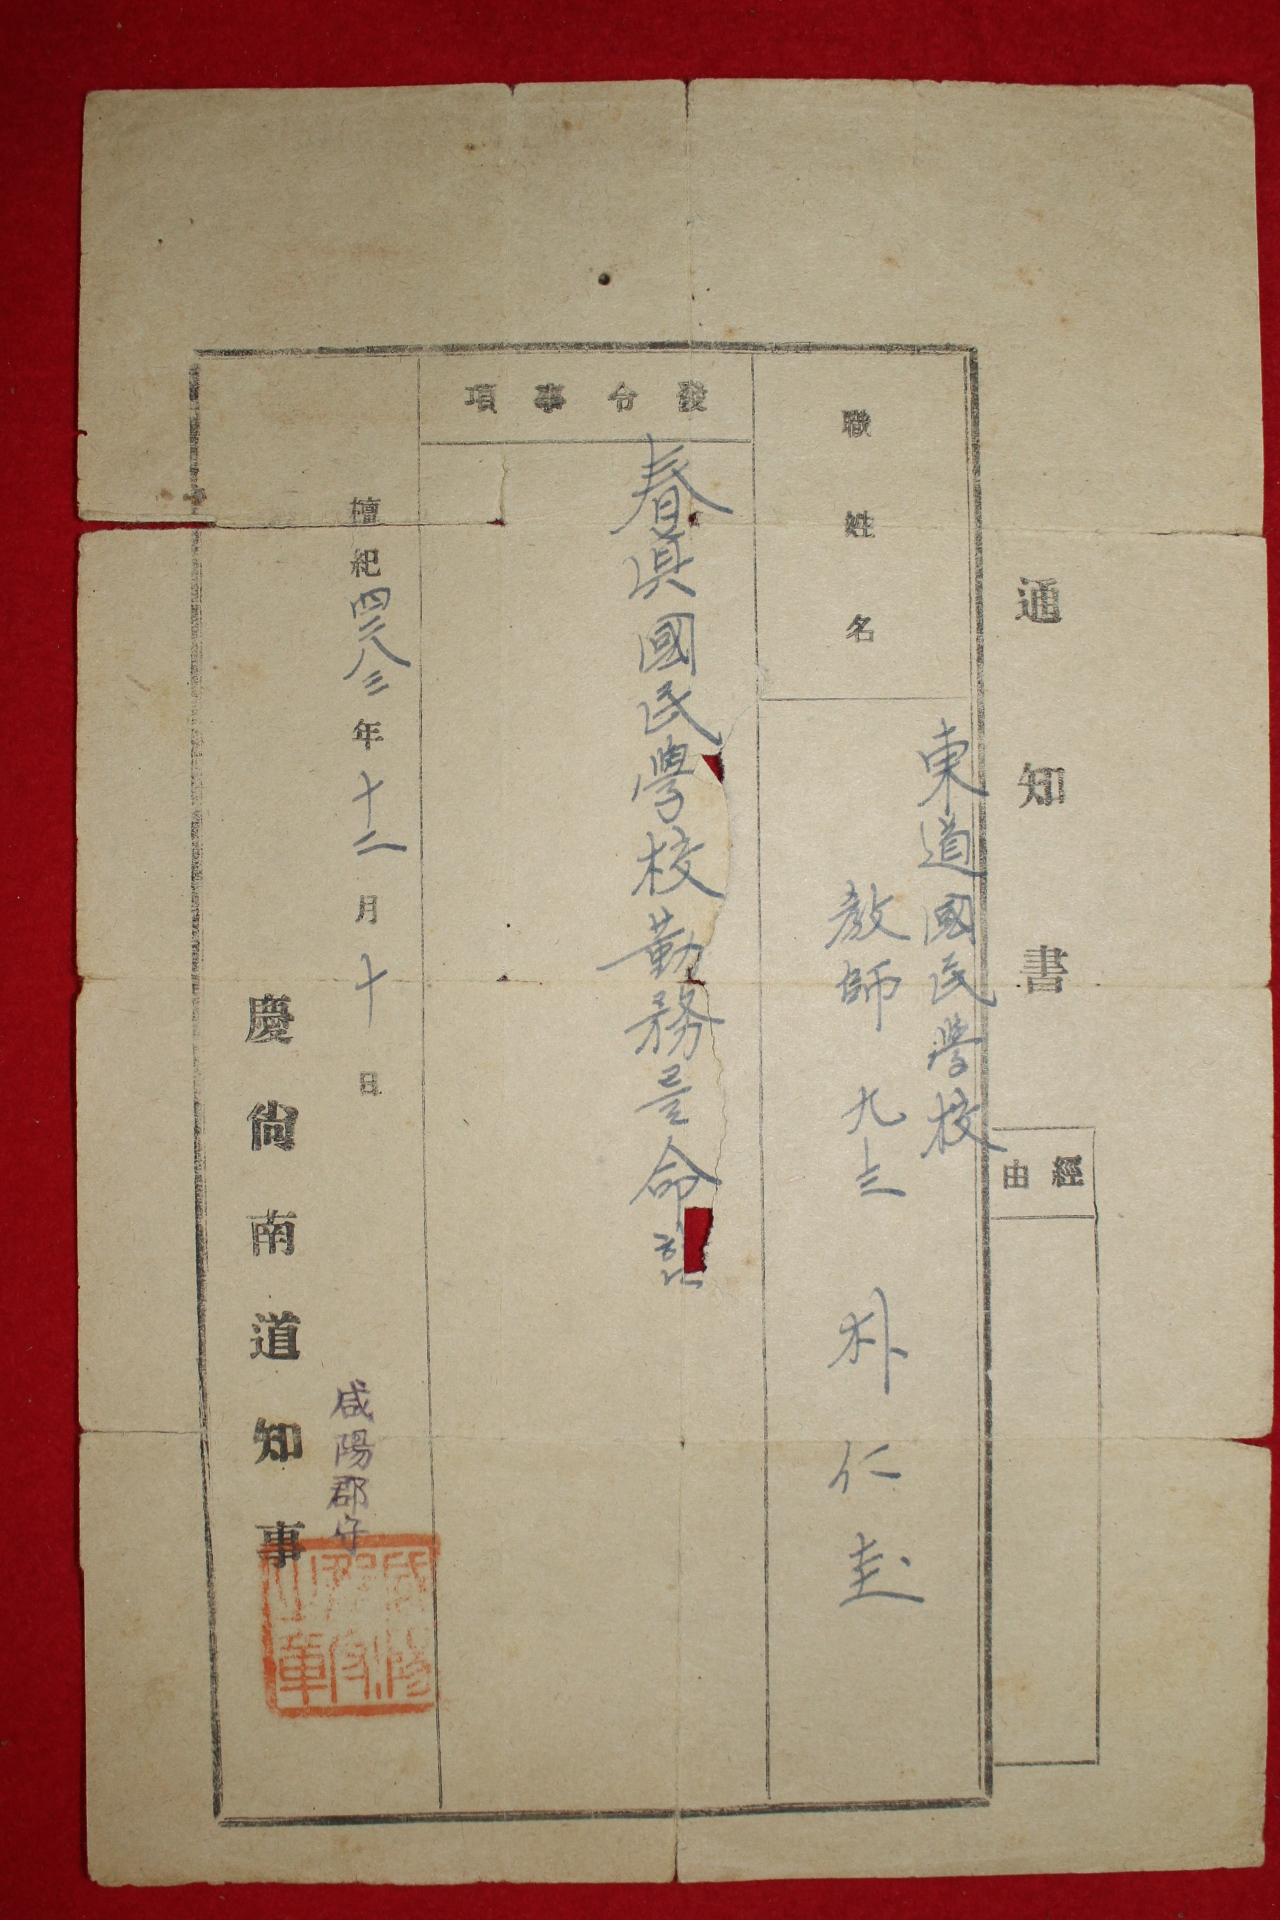 通知書
經由
職姓名
東道國民學校
教師 九三 朴仁圭
發令事項
春眞國民學校勤務를命함
檀紀四二八三年十二月十日
咸陽郡守
慶尙南道知事
咸陽
郡守
之章